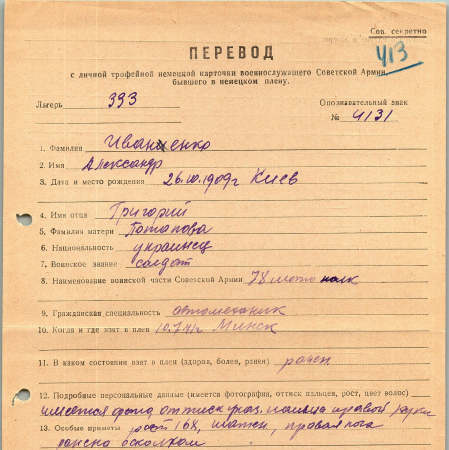 Сов. секретно
413
ПЕРЕВОД
с личной трофейной немецкой карточки военнослужащего Советской Армии,
бывшего в немецком плену.
Лагерь 333
Опознавательный знак
№ 4131
1. Фамилия Иваненко
2. Имя Александр
3. Дата и место рождения 26.10.1909г Киев
4. Имя отца Григорий
5. Фамилия матери Потапова
6. Национальность украинец
7. Воинское звание солдат
8. Наименование воинской части Советской Армии 78 мото полк
9. Гражданская специальность автомеханик
10. Когда и где взят в плен 10.7.41г Минск
11. В каком состоянии взят в плен (здоров, болен, ранен) ранен
12. Подробные персональные данные (имеется фотография, оттиск пальцев, рост, цвет волос)
имеется фото, оттиск указ. пальца правой руки
13. Особые приметы рост 168, шатен, правая нога
ранена осколком